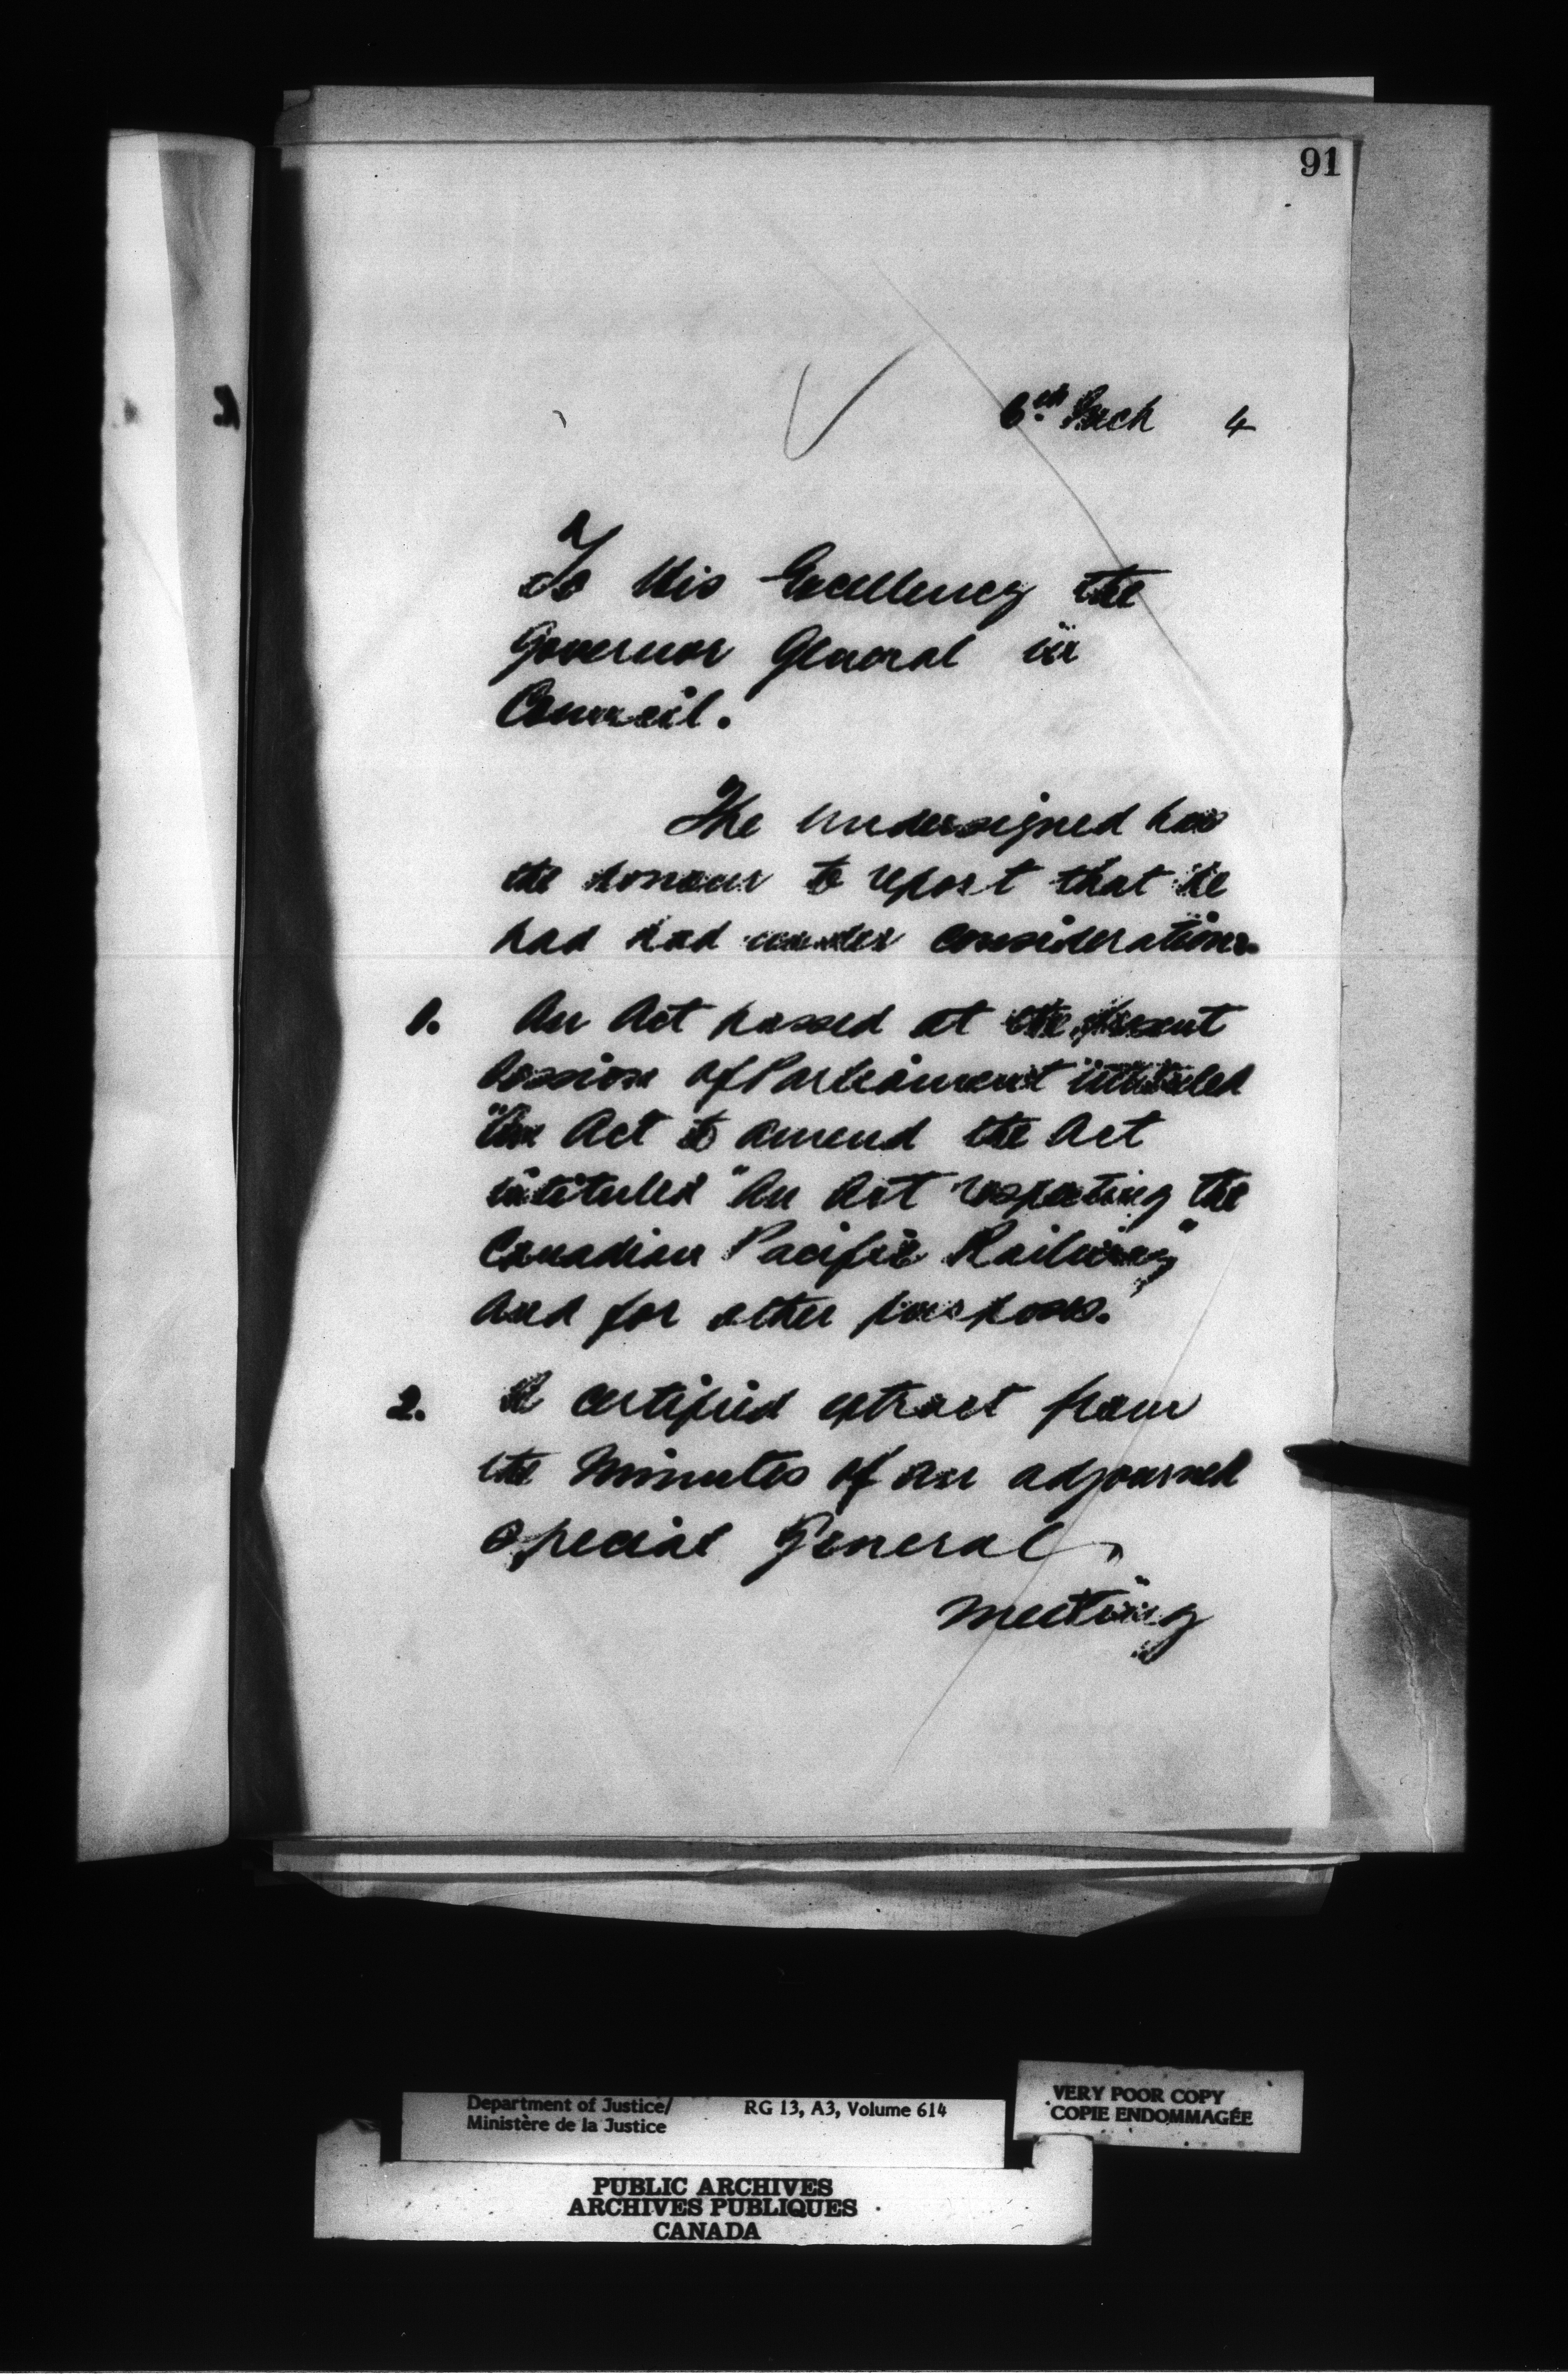 91
6th March 4
To His Excellency the
Governor General in
Council.
The undersigned has
the honour to report that he
had had under consideration
1. An Act passed at the present
session of Parliament intituled
"An Act to amend the Act
intituled "An Act respecting the
Canadian Pacific Railway"
and for other purposes."
2. A certified extract from
the Minutes of an adjourned
Special General
meeting
Department of Justice/
Ministère de la Justice
RG 13, A3, Volume 614
VERY POOR COPY
COPIE ENDOMMAGÉE
PUBLIC ARCHIVES
ARCHIVES PUBLIQUES
CANADA